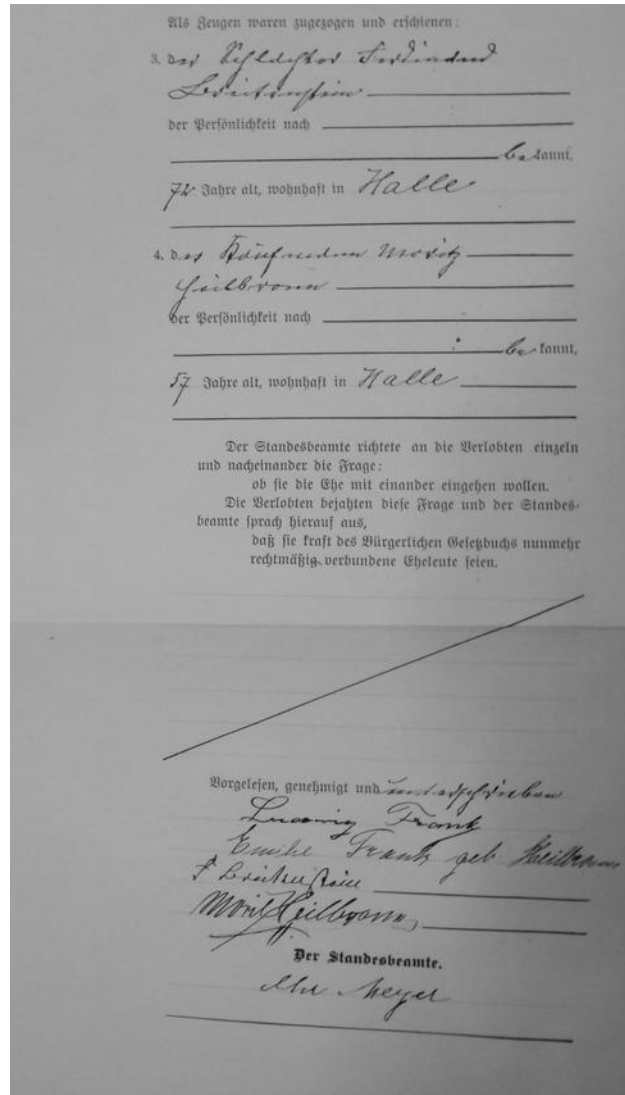 Als Zeugen waren zugezogen und erschienen:
3. der Schlachter Ferdinand
Breitenstein
der Persönlichkeit nach
bekannt,
72 Jahre alt, wohnhaft in Halle
4. der Kaufmann Moritz
Heilbronn
der Persönlichkeit nach
bekannt,
57 Jahre alt, wohnhaft in Halle
Der Standesbeamte richtete an die Verlobten einzeln
und nacheinander die Frage:
ob sie die Ehe mit einander eingehen wollen.
Die Verlobten bejahten diese Frage und der Standes-
beamte sprach hierauf aus,
daß sie kraft des Bürgerlichen Gesetzbuchs nunmehr
rechtmäßig verbundene Eheleute seien.
Vorgelesen, genehmigt und unterschrieben
Ludwig Frank
Emilie Frank geb Heilbronn
F Breitenstein
Moritz Heilbronn
Der Standesbeamte.
Meyer